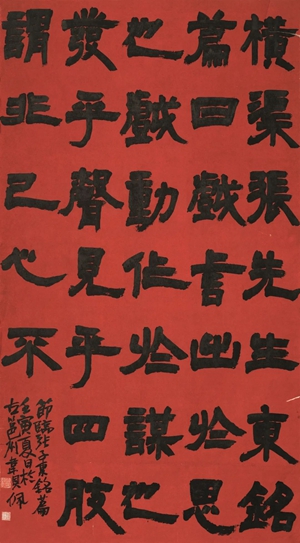 橫渠張先生東銘
篇曰戲言出於思
也戲動作於謀也
發乎聲見乎四肢
謂非己心不
節臨張子東銘篇
壬寅夏日於